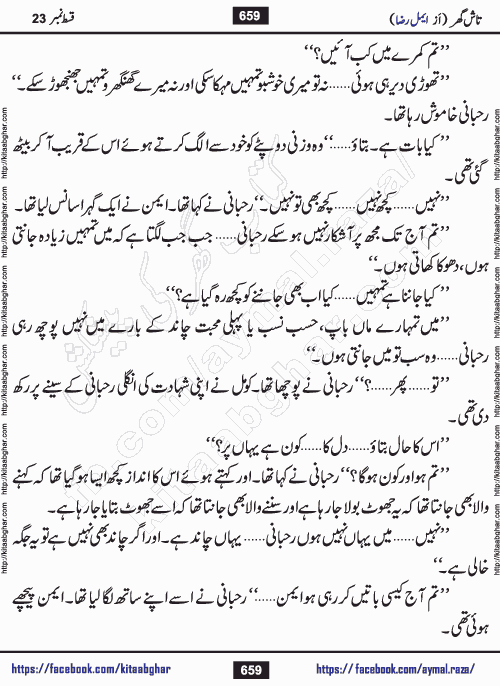 قسط نمبر 23
659
تاش گھر (از ایمل رضا)
’’تم کمرے میں کب آئیں؟‘‘
’’تھوڑی دیر ہی ہوئی......نہ تو میری خوشبو تمہیں مہکا سکی اور نہ میرے گھنگھرو تمہیں جھنجھوڑ سکے۔‘‘
رحبانی خاموش رہا تھا۔
’’کیا بات ہے۔ بتاؤ......‘‘وہ وزنی دوپٹے کو خود سے الگ کرتے ہوئے اس کے قریب آ کر بیٹھ
گئی تھی۔
’’نہیں......کچھ نہیں......کچھ بھی تو نہیں۔‘‘رحبانی نے کہا تھا۔ ایمن نے ایک گہرا سانس لیا تھا۔
’’تم آج تک مجھ پر آشکار نہیں ہو سکے رحبانی...... جب جب لگتا ہے کہ میں تمہیں زیادہ جانتی
ہوں، دھوکا کھاتی ہوں۔‘‘
’’کیا جاننا ہے تمہیں......کیا اب بھی جاننے کو کچھ رہ گیا ہے؟‘‘
’’میں تمہارے ماں باپ، حسب نسب یا پہلی محبت چاند کے بارے میں نہیں پوچھ رہی
رحبانی......وہ سب تو میں جانتی ہوں۔‘‘
’’تو......پھر......؟‘‘رحبانی نے پوچھا تھا۔ کومل نے اپنی شہادت کی انگلی رحبانی کے سینے پر رکھ
دی تھی۔
’’اس کا حال بتاؤ......دل کا......کون ہے یہاں پر؟‘‘
’’تم ہو اور کون ہوگا؟‘‘رحبانی نے کہا تھا۔ اور کہتے ہوئے اس کا انداز کچھ ایسا ہو گیا تھا کہ کہنے
والا بھی جانتا تھا کہ یہ جھوٹ بولا جا رہا ہے اور سننے والا بھی جانتا تھا کہ اسے جھوٹ بتایا جا رہا ہے۔
’’نہیں......میں یہاں نہیں ہوں رحبانی...... یہاں چاند ہے۔ اور اگر چاند بھی نہیں ہے تو یہ جگہ
خالی ہے۔‘‘
’’تم آج کیسی باتیں کر رہی ہو ایمن......‘‘ رحبانی نے اسے اپنے ساتھ لگا لیا تھا۔ ایمن پیچھے
ہوئی تھی۔
https://facebook.com/kitaabghar
659
https://facebook.com/aymal.raza/
http://kitaabghar.com http://kitaabghar.com http://kitaabghar.com http://kitaabghar.com http://kitaabghar.com
http://kitaabghar.com http://kitaabghar.com http://kitaabghar.com http://kitaabghar.com http://kitaabghar.com